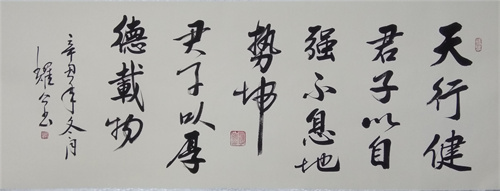 天行健
君子以自
强不息地
勢坤
君子以厚
德載物
辛丑年冬月
耀公书